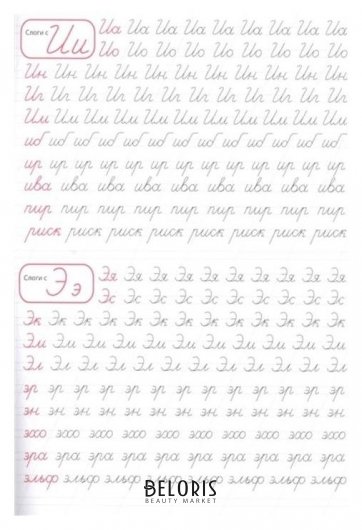 Слоги с Ии Иа Иа Иа Иа Иа Иа Иа Иа Иа
Ио Ио Ио Ио Ио Ио Ио Ио Ио
Ин Ин Ин Ин Ин Ин Ин Ин Ин Ин Ин
Иг Иг Иг Иг Иг Иг Иг Иг Иг Иг Иг
Им Им Им Им Им Им Им Им Им Им
иб иб иб иб иб иб иб иб иб иб иб иб
ир ир ир ир ир ир ир ир ир ир ир
ива ива ива ива ива ива ива ива ива
пир пир пир пир пир пир пир пир пир
риск риск риск риск риск риск риск риск
Слоги с Ээ Эя Эя Эя Эя Эя Эя Эя Эя Эя
Эс Эс Эс Эс Эс Эс Эс Эс Эс
Эк Эк Эк Эк Эк Эк Эк Эк Эк Эк Эк Эк
Эм Эм Эм Эм Эм Эм Эм Эм Эм Эм Эм
Эл Эл Эл Эл Эл Эл Эл Эл Эл Эл Эл
эр эр эр эр эр эр эр эр эр эр эр
эн эн эн эн эн эн эн эн эн эн эн
эхо эхо эхо эхо эхо эхо эхо эхо
эра эра эра эра эра эра эра эра эра
эльф эльф эльф эльф эльф эльф эльф эльф
BELORIS
BEAUTY MARKET